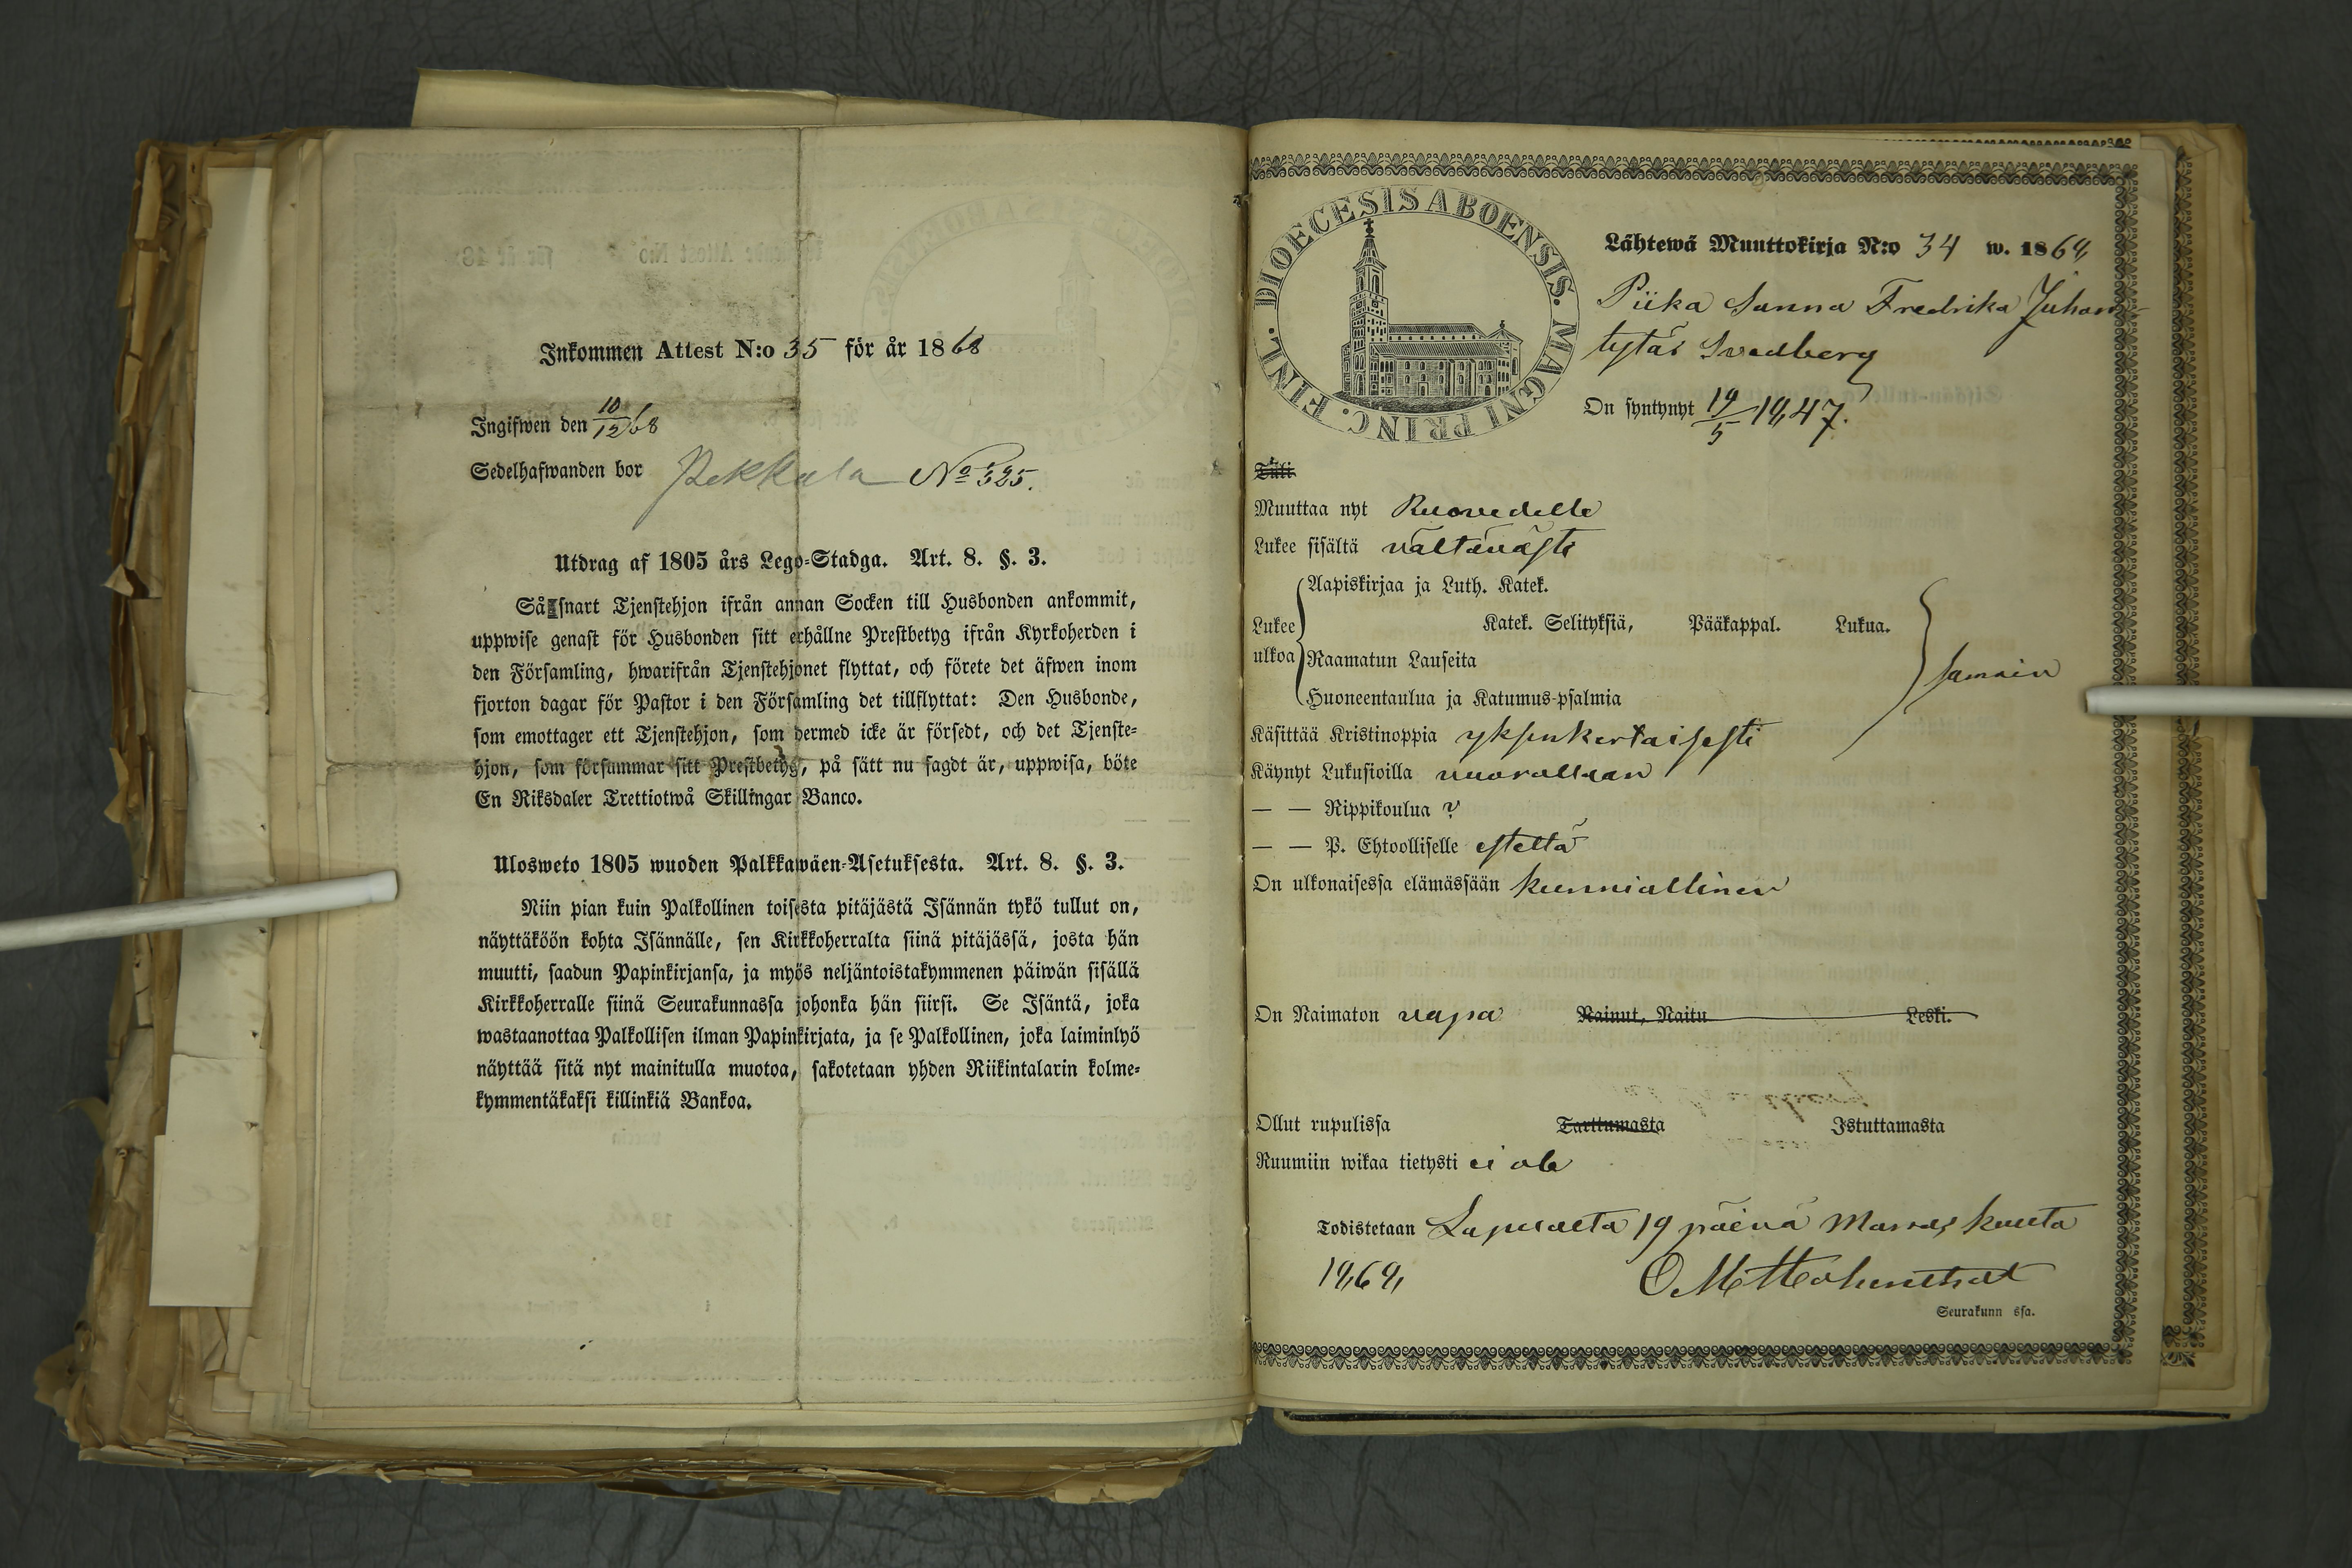 Inkommen Attest N:o 35 för år 1868
Ingifwen den 10/12 68
Sedelhafwanden bor Pekkala No 325.
Utdrag af 1805 års Lego-Stadga. Art. 8. §. 3.
Så snart Tjenstehjon ifrån annan Socken till Husbonden ankommit,
uppwise genast för Husbonden sitt erhållne Prestbetyg ifrån Kyrkoherden i
den Församling, hwarifrån Tjenstehjonet flyttat, och förete det äfwen inom
fjorton dagar för Pastor i den Församling det tillflyttat: Den Husbonde,
som emottager ett Tjenstehjon, som dermed icke är försedt, och det Tjenste-
hjon, som försummar sitt Prestbetyg, på sätt nu sagdt är, uppwisa, böte
En Riksdaler Trettiotwå Skillingar Banco.
Ulosweto 1805 wuoden Palkkawäen-Asetuksesta. Art. 8. §. 3.
Niin pian kuin Palkollinen toisesta pitäjästä Isännän tykö tullut on,
näyttäköön kohta Isännälle, sen Kirkkoherralta siinä pitäjässä, josta hän
muutti, saadun Papinkirjansa, ja myös neljäntoistakymmenen päiwän sisällä
Kirkkoherralle siinä Seurakunnassa johonka hän siirsi. Se Isäntä, joka
wastaanottaa Palkollisen ilman Papinkirjata, ja se Palkollinen, joka laiminlyö
näyttää sitä nyt mainitulla muotoa, sakotetaan yhden Riikintalarin kolme-
kymmentäkaksi killinkiä Bankoa.
DIOECESIS ABOENSIS. MAGNI PRINC. FINL.
Lähtewä Muuttokirja N:o 34 w. 1868
Piika Sanna Fredrika Juhon-
tytär Svedberg
On syntynyt 19/5 1847.
Tuli
Muuttaa nyt Ruovedelle
Lukee sisältä vältävästi
Aapiskirjaa ja Luth. Katek.
Lukee ulkoa Katek. Selityksiä, Pääkappal. Lukua.
Raamatun Lauseita samoin
Huoneentaulua ja Katumus-psalmia
Käsittää Kristinoppia yksinkertaisesti
Käynyt Lukusioilla vuorollaan
— — Rippikoulua ?
— — P. Ehtoolliselle esteltä
On ulkonaisessa elämässään kunniallinen
On Naimaton vapa Nainut, Naitu Leski.
Ollut rupulissa Tarttumasta Istuttamasta
Ruumiin wikaa tietysti ei ole
Todistetaan Lapualta 19 päivä Marraskuuta
1868
Seurakunn ssa.